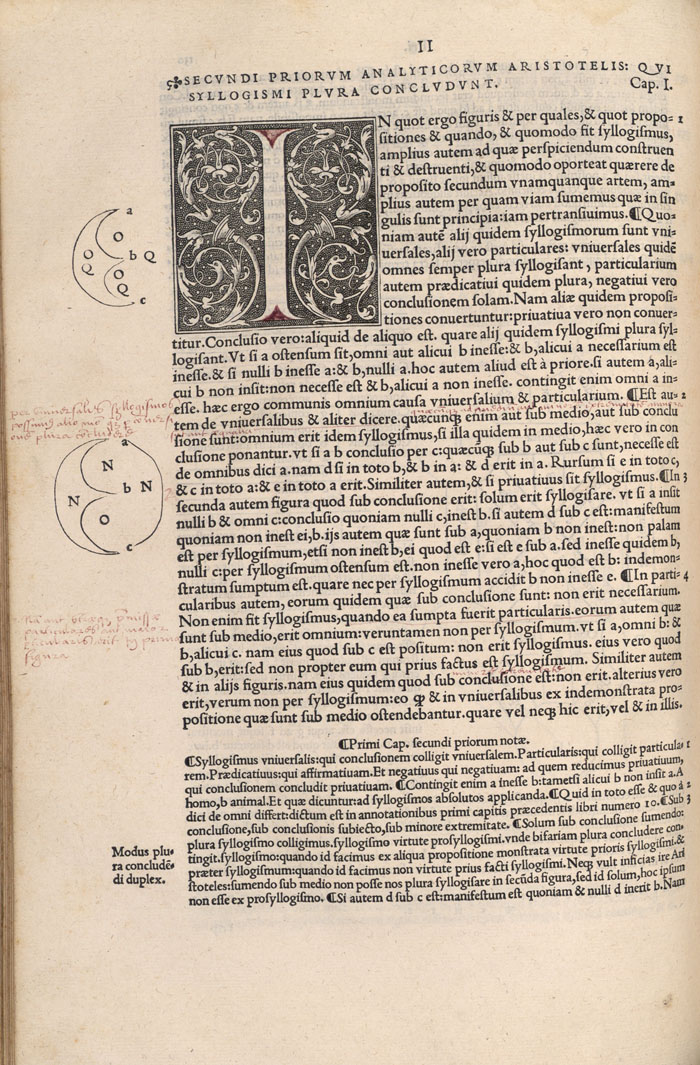 II
SECVNDI PRIORVM ANALYTICORVM ARISTOTELIS: QVI
SYLLOGISMI PLVRA CONCLVDVNT. Cap. I.
IN quot ergo figuris & per quales, & quot propo- 1
sitiones & quando, & quomodo fit syllogismus,
amplius autem ad quæ perspiciendum construen
ti & destruenti, & quomodo oporteat quærere de
proposito secundum vnamquanque artem, am-
plius autem per quam viam sumemus quæ in sin
gulis sunt principia: iam pertransiuimus. ¶Quo-
niam autē alij quidem syllogismorum sunt vni-
uersales, alij vero particulares: vniuersales quidē
omnes semper plura syllogisant, particularium
autem prædicatiui quidem plura, negatiui vero
conclusionem solam. Nam aliæ quidem proposi-
tiones conuertuntur: priuatiua vero non conuer-
titur. Conclusio vero: aliquid de aliquo est. quare alij quidem syllogismi plura syl-
logisant. Vt si a ostensum sit, omni aut alicui b inesse: & b, alicui a necessarium est
inesse. & si nulli b inesse a: & b, nulli a. hoc autem aliud est à priore. si autem a, ali-
cui b non insit: non necesse est & b, alicui a non inesse. contingit enim omni a in-
esse. hæc ergo communis omnium causa vniuersalium & particularium. ¶Est au- 2
tem de vniuersalibus & aliter dicere. quæcunq; enim aut sub medio, aut sub conclu
sione sunt: omnium erit idem syllogismus, si illa quidem in medio, hæc vero in con
clusione ponantur. vt si a b conclusio per c: quæcunq; sub b aut sub c sunt, necesse est
de omnibus dici a. nam d si in toto b, & b in a: & d erit in a. Rursum si e in toto c,
& c in toto a: & e in toto a erit. Similiter autem, & si priuatiuus sit syllogismus. ¶In 3
secunda autem figura quod sub conclusione erit: solum erit syllogisare. vt si a insit
nulli b & omni c: conclusio quoniam nulli c, inest b. si autem d sub c est: manifestum
quoniam non inest ei, b. ijs autem quæ sunt sub a, quoniam b non inest: non palam
est per syllogismum, etsi non inest b, ei quod est e: si est e sub a. sed inesse quidem b,
nulli c: per syllogismum ostensum est. non inesse vero a, hoc quod est b: indemon-
stratum sumptum est. quare nec per syllogismum accidit b non inesse e. ¶In parti- 4
cularibus autem, eorum quidem quæ sub conclusione sunt: non erit necessarium.
Non enim fit syllogismus, quando ea sumpta fuerit particularis. eorum autem quæ
sunt sub medio, erit omnium: veruntamen non per syllogismum. vt si a, omni b: &
b, alicui c. nam eius quod sub c est positum: non erit syllogismus. eius vero quod
sub b, erit: sed non propter eum qui prius factus est syllogismum. Similiter autem
& in alijs figuris. nam eius quidem quod sub conclusione est: non erit. alterius vero
erit, verum non per syllogismum: eo qp & in vniuersalibus ex indemonstrata pro-
positione quæ sunt sub medio ostendebantur. quare vel neq; hic erit, vel & in illis.
¶Primi Cap. secundi priorum notæ.
¶Syllogismus vniuersalis: qui conclusionem colligit vniuersalem. Particularis: qui colligit particula- 1
rem. Prædicatiuus: qui affirmatiuam. Et negatiuus qui negatiuam: ad quem reducimus priuatiuum,
qui conclusionem concludit priuatiuam. ¶Contingit enim a inesse b: tametsi alicui b non insit a. A
homo, b animal. Et quæ dicuntur: ad syllogismos absolutos applicanda. ¶Quid in toto esse & quo à 2
dici de omni differt: dictum est in annotationibus primi capitis præcedentis libri numero 10. ¶Sub 3
conclusione, sub conclusionis subiecto, sub minore extremitate. ¶Solum sub conclusione sumendo:
plura syllogismo colligimus. syllogismo virtute prosyllogismi. vnde bifariam plura concludere con-
tingit. syllogismo: quando id facimus ex aliqua propositione monstrata virtute prioris syllogismi. &
præter syllogismum: quando id facimus non virtute prius facti syllogismi. Neq; vult inficias ire Ari
stoteles: sumendo sub medio non posse nos plura syllogisare in secūda figura, sed id solum, hoc ipsum
non esse ex prosyllogismo. ¶Si autem d sub c est: manifestum est quoniam & nulli d inerit b. Nam
Modus plu-
ra concludē-
di duplex.
a
O
b Q
O
Q
O
Q
c
a
N
N
b N
O
c